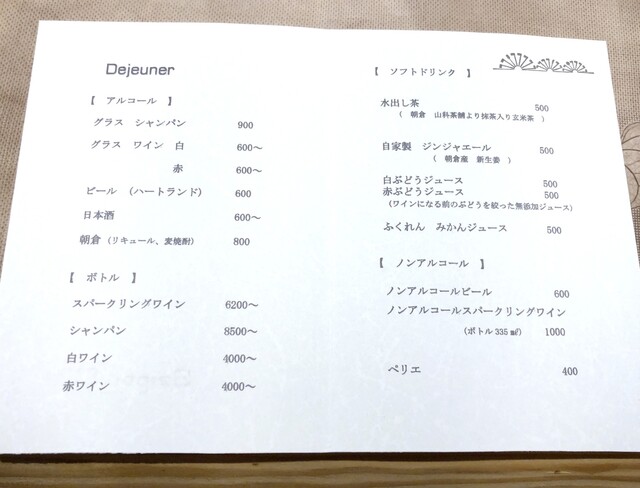 Dejeuner
【 アルコール 】
グラス シャンパン 900
グラス ワイン 白 600～
赤 600～
ビール （ハートランド） 600
日本酒 600～
朝倉（リキュール、麦焼酎） 800
【 ボトル 】
スパークリングワイン 6200～
シャンパン 8500～
白ワイン 4000～
赤ワイン 4000～
【 ソフトドリンク 】
水出し茶 500
（ 朝倉 山科茶舗より抹茶入り玄米茶 ）
自家製 ジンジャエール 500
（ 朝倉産 新生姜 ）
白ぶどうジュース 500
赤ぶどうジュース 500
（ワインになる前のぶどうを絞った無添加ジュース）
ふくれん みかんジュース 500
【 ノンアルコール 】
ノンアルコールビール 600
ノンアルコールスパークリングワイン
（ボトル 335 ㎖） 1000
ペリエ 400